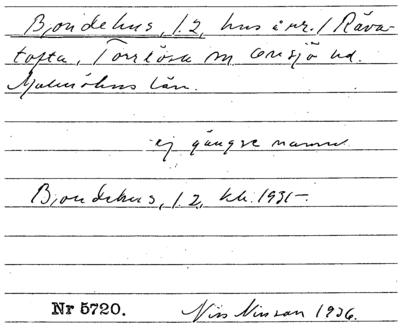 Bjondehus, l. 2, hus å nr. 1 Råva-
tofta, Torrlösa sn Onsjö hd.
Malmöhus län.
ej gängse namn
Bjondehus, l. 2, kk. 1931-
Nr 5720. Nils Nilsson 1936.